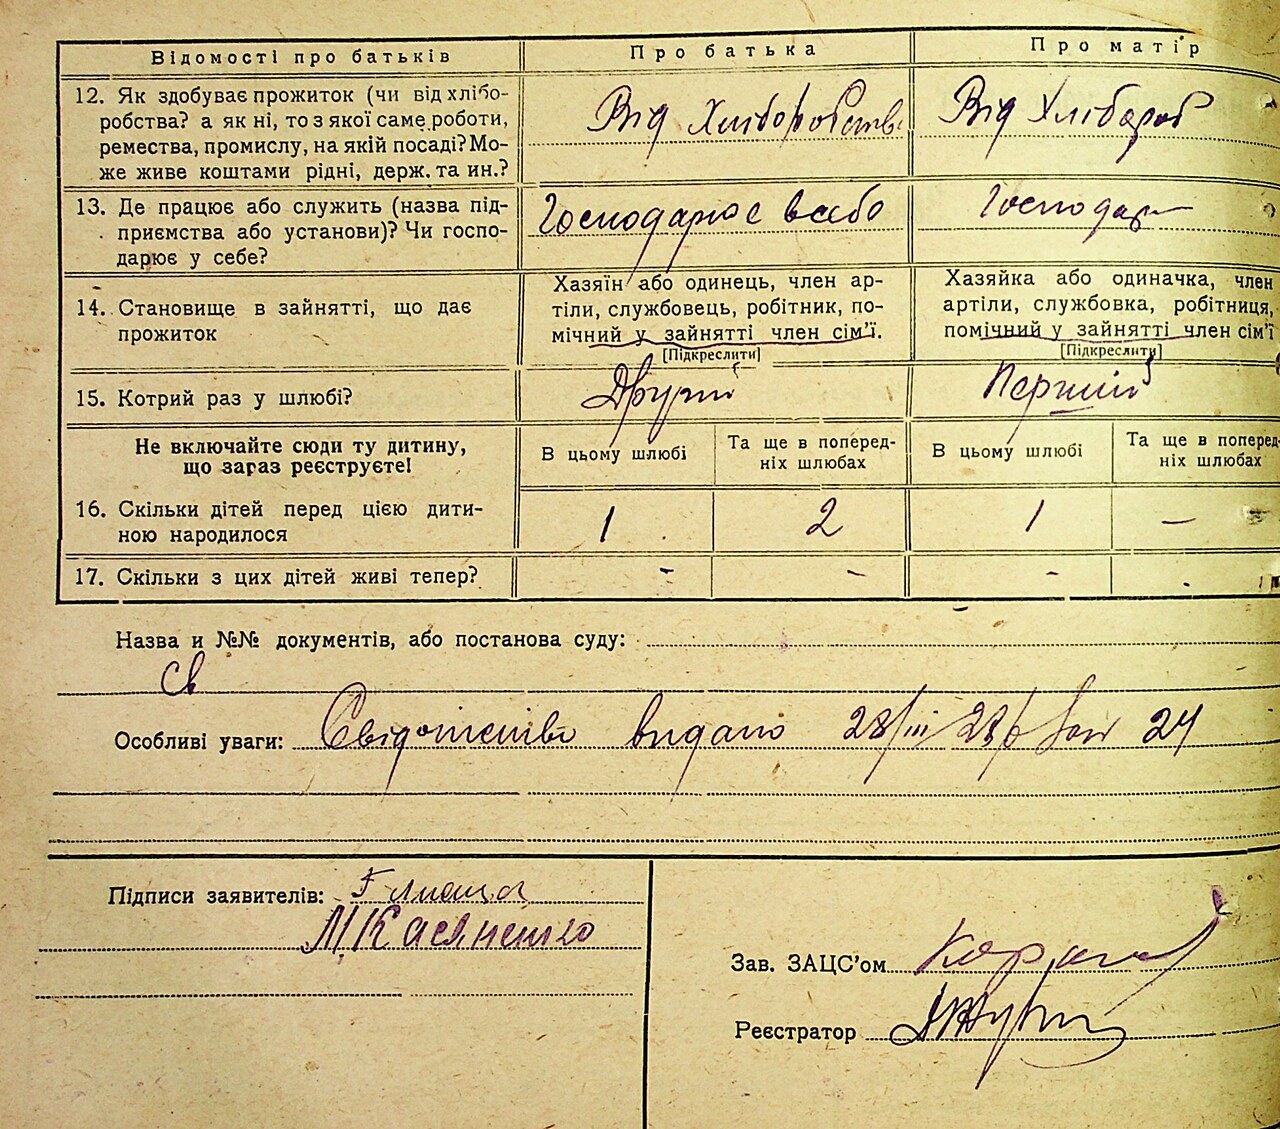 Відомості про батьків
Про батька
Про матір
12. Як здобуває прожиток (чи від хлібо-
робства? а як ні, то з якої саме роботи,
ремества, промислу, на якій посаді? Мо-
же живе коштами рідні, держ. та ин.?
Від Хліборобств
Від Хлібороб
13. Де працює або служить (назва під-
приємства або установи)? Чи госпо-
дарює у себе?
Господарює в себе
Господар
14. Становище в зайнятті, що дає
прожиток
Хазяїн або одинець, член ар-
тіли, службовець, робітник, по-
мічний у зайнятті член сім'ї.
[Підкреслити]
Хазяйка або одиначка, член
артіли, службовка, робітниця,
помічний у зайнятті член сім'ї
[Підкреслити]
15. Котрий раз у шлюбі?
Другий
Перший
Не включайте сюди ту дитину,
що зараз реєструєте!
В цьому шлюбі
Та ще в поперед-
ніх шлюбах
В цьому шлюбі
Та ще в поперед-
ніх шлюбах
16. Скільки дітей перед цією дити-
ною народилося
1
2
1
—
17. Скільки з цих дітей живі тепер?
-
-
-
Назва и №№ документів, або постанова суду:
Св
Особливі уваги: Свідотство видано 28/III 28 24
Підписи заявителів:
М Касяненко
Зав. ЗАЦС'ом
Реєстратор